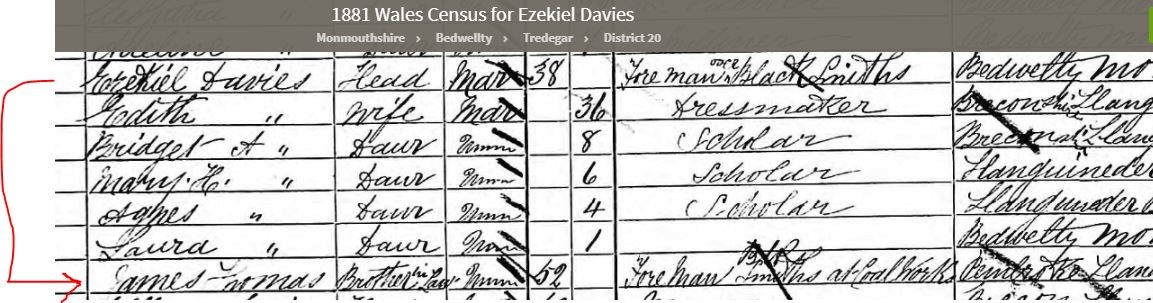 1881 Wales Census for Ezekiel Davies
Monmouthshire > Bedwellty > Tredegar > District 20
Ezekiel Davies Head Mar 38 Foreman over Black Smiths Bedwelty Mo
Edith " Wife Mar 36 Dressmaker Breconshire Llang
Bridget A " Daur Unm 8 Scholar
Mary. H. " Daur Unm 6 Scholar
Agnes " Daur Unm 4 Scholar
Laura " Daur Unm 1 Bedwelty Mo
James Thomas Brother in Law Unm 52 Foreman Smiths at Coal Works Pembroke Llan